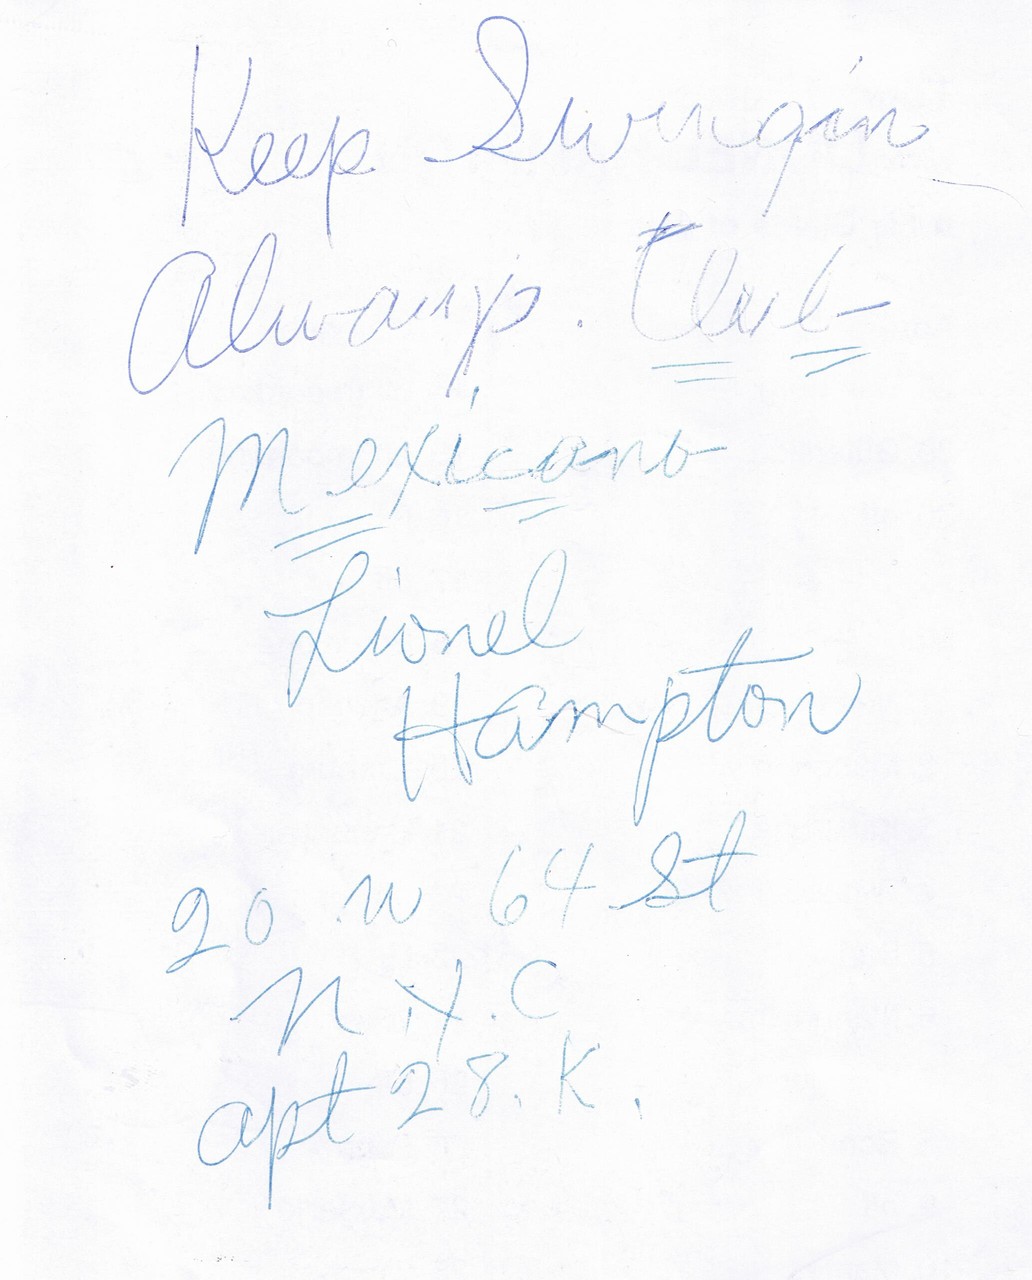 Keep Swingin
Always. Club
Mexicano
Lionel
Hampton
20 W 64 St
N.Y.C
apt 28.K.